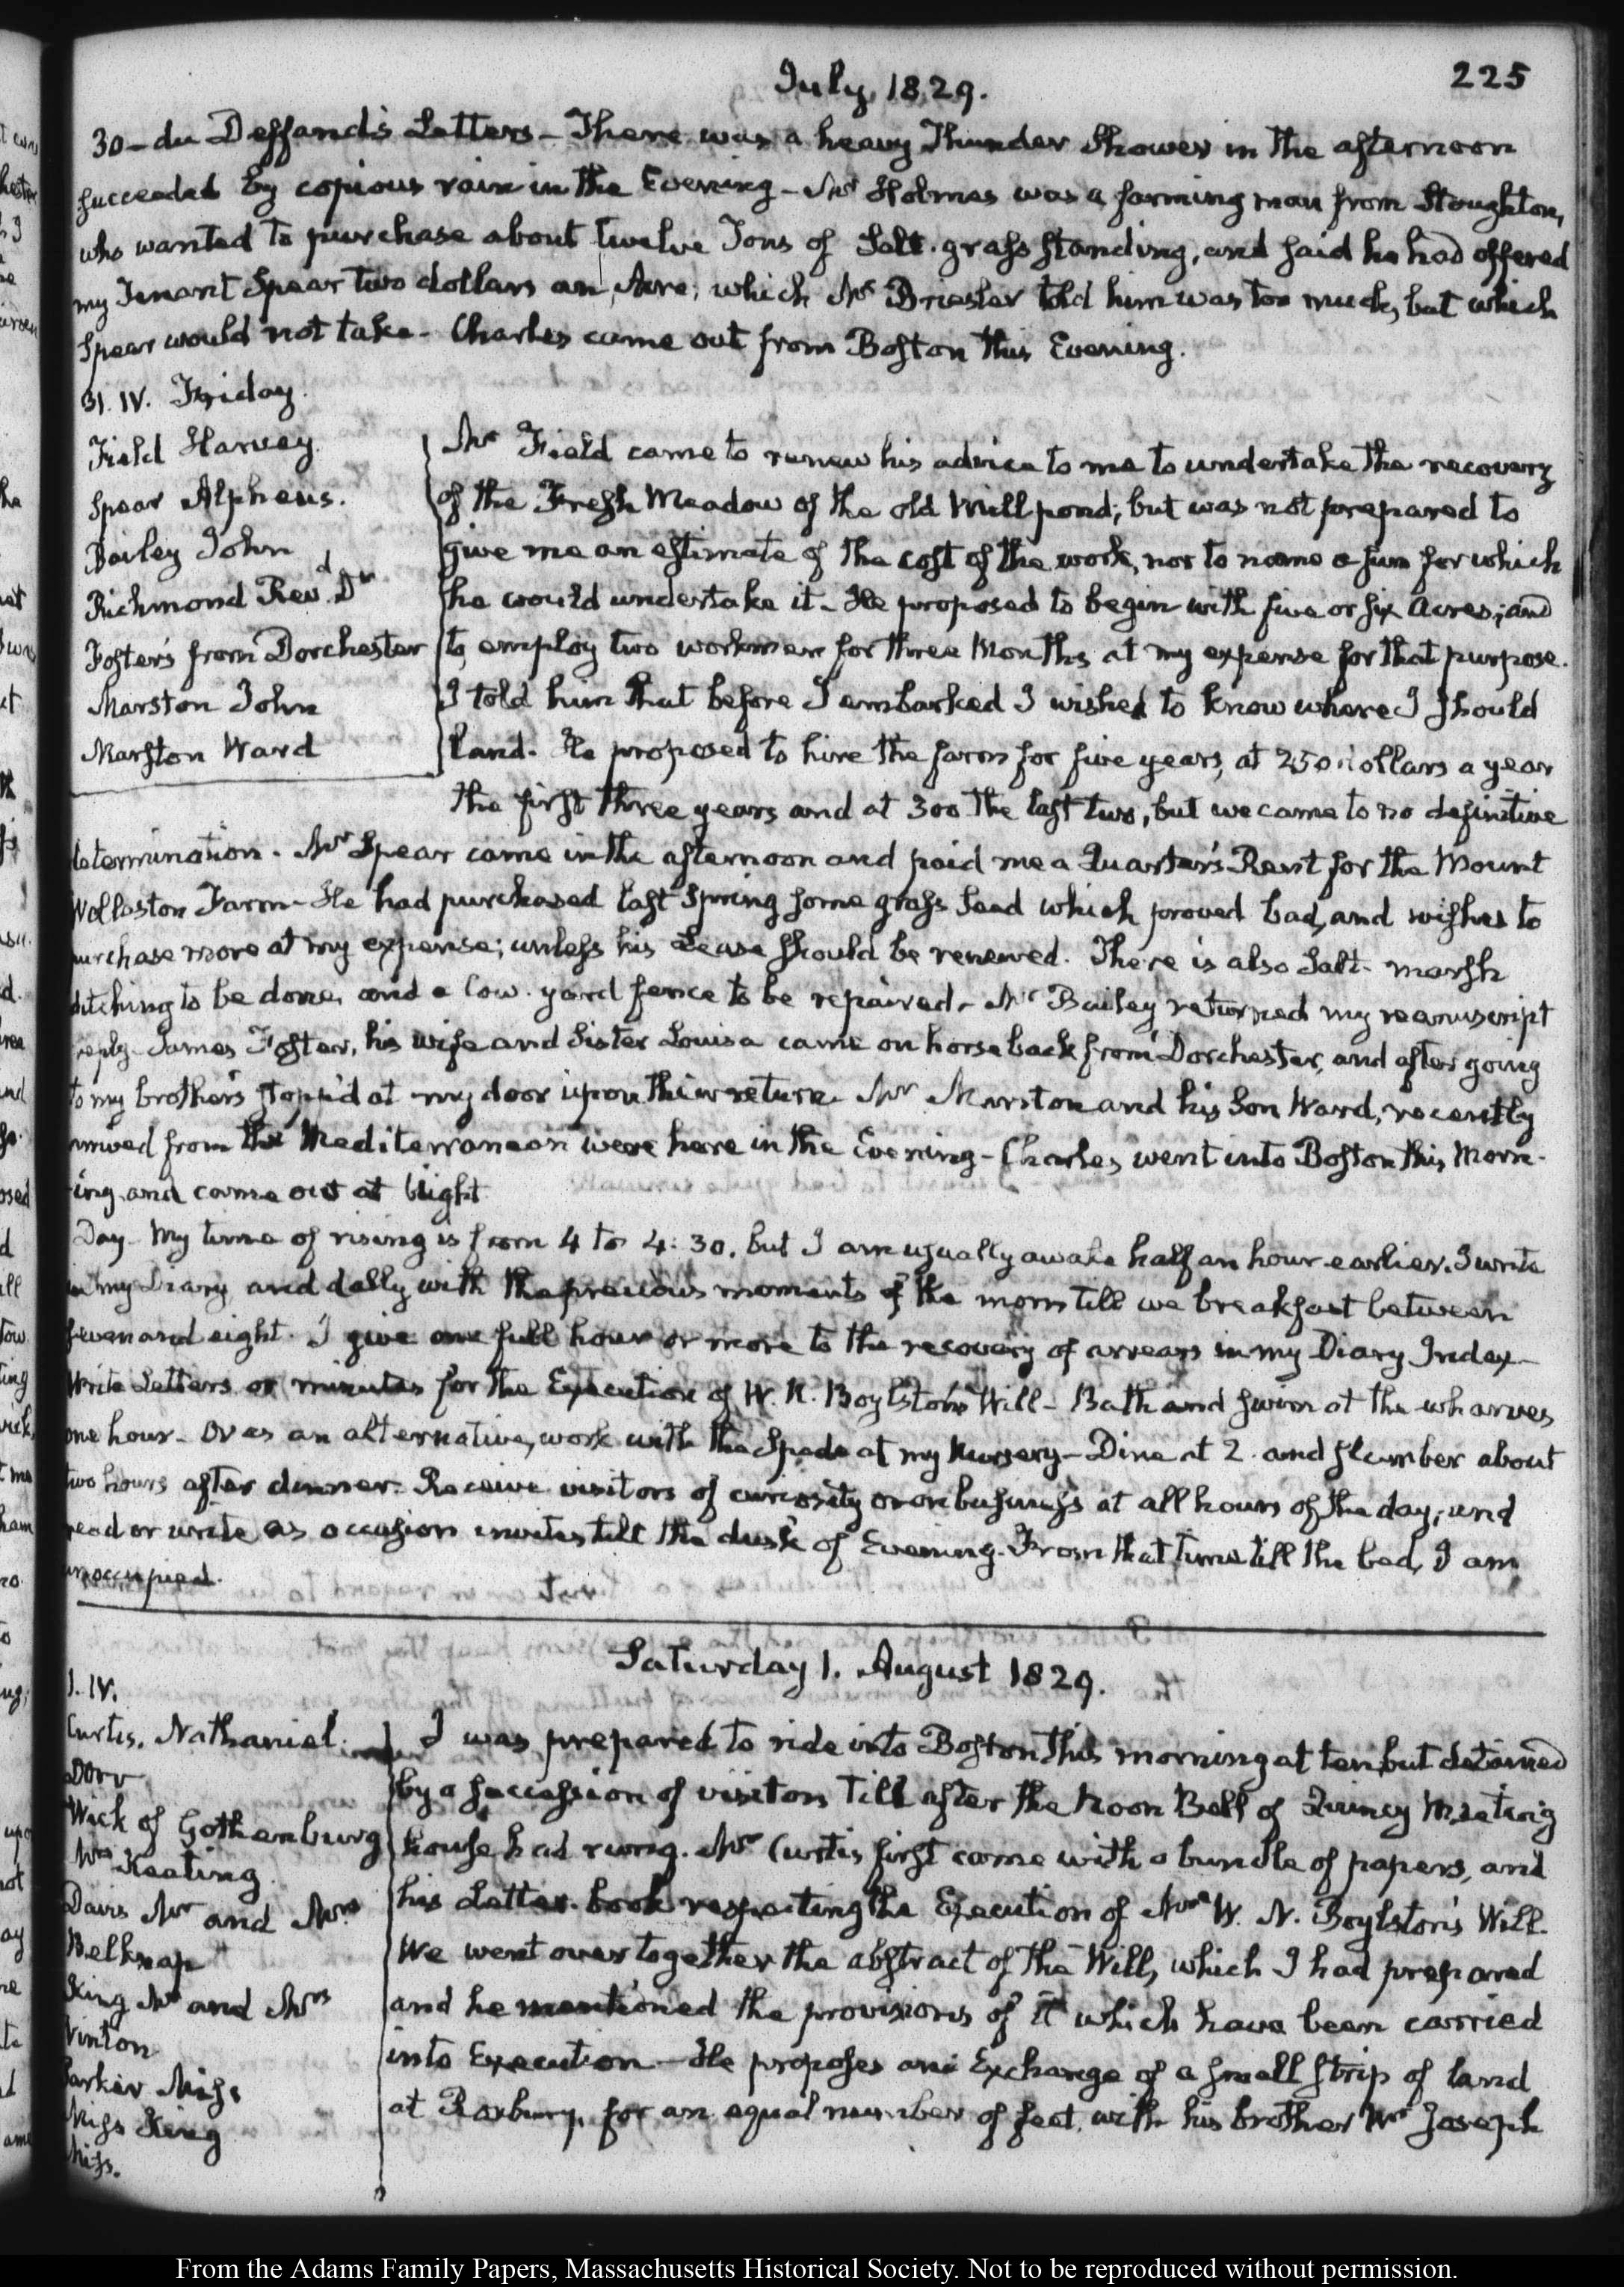 July, 1829.
225
30 – du Deffand's Letters – There was a heavy Thunder Shower in the afternoon
succeeded by copious rain in the Evening – Mr Holmes was a farming man from Stoughton,
who wanted to purchase about twelve Tons of Salt-grass standing, and said he had offered
my Tenant Spear two dollars an Acre; which Mr Briesler told him was too much, but which
Spear would not take – Charles came out from Boston this Evening.
31. IV. Friday.
Field Harvey.
Spear Alpheus.
Bailey John
Richmond Revd. Dr
Foster's from Dorchester
Marston John
Marston Ward
Mr Field came to renew his advice to me to undertake the recovery
of the Fresh Meadow of the old Mill pond; but was not prepared to
give me an estimate of the cost of the work, nor to name a sum for which
he would undertake it – He proposed to begin with five or six Acres; and
to employ two workmen for three Months at my expense for that purpose.
I told him that before I embarked I wished to know where I should
land. He proposed to hire the farm for five years, at 250 dollars a year
the first three years and at 300 the last two, but we came to no definitive
determination. Mr Spear came in the afternoon and paid me a Quarter's Rent for the Mount
Wollaston Farm – He had purchased last Spring some grass seed which proved bad, and wishes to
purchase more at my expense; unless his Lease should be renewed. There is also Salt-marsh
ditching to be done, and a Cow-yard fence to be repaired – Mr Bailey returned my manuscript
reply – James Foster, his wife and Sister Louisa came on horseback from Dorchester, and after going
to my brother's stopp'd at my door upon their return. Mr Marston and his Son Ward, recently
arrived from the Mediterranean were here in the Evening – Charles went into Boston this Morn-
ing and came out at Night
Day – My time of rising is from 4 to 4:30. but I am usually awake half an hour earlier. I write
in my Diary and dally with the precious moments of the morn till we breakfast between
seven and eight. I give one full hour or more to the recovery of arrears in my Diary Index –
Write Letters or minutes for the Execution of W. N. Boylston's Will – Bath and swim at the wharves
one hour – Or as an alternative, work with the Spade at my Nursery – Dine at 2. and slumber about
two hours after dinner. Receive visitors of curiosity or on business at all hours of the day; and
read or write as occasion invites till the dusk of Evening. From that time till the bed, I am
unoccupied.
Saturday 1. August 1829.
1. IV.
Curtis. Nathaniel
Dorr
Wick of Gothenburg
Mrs Keating
Davis Mr and Mrs
Belknap
King Mr and Mrs
Vinton
Parker Miss
Miss King
Miss.
I was prepared to ride into Boston this morning at ten but detained
by a succession of visitors till after the Noon Bell of Quincy Meeting
house had rung. Mr Curtis first came with a bundle of papers, and
his Letter-book respecting the Execution of Mr W. N. Boylston's Will.
We went over together the abstract of the Will, which I had prepared
and he mentioned the provisions of it which have been carried
into Execution – He proposes an Exchange of a small strip of land
at Roxbury, for an equal number of feet, with his brother Mr Joseph
From the Adams Family Papers, Massachusetts Historical Society. Not to be reproduced without permission.